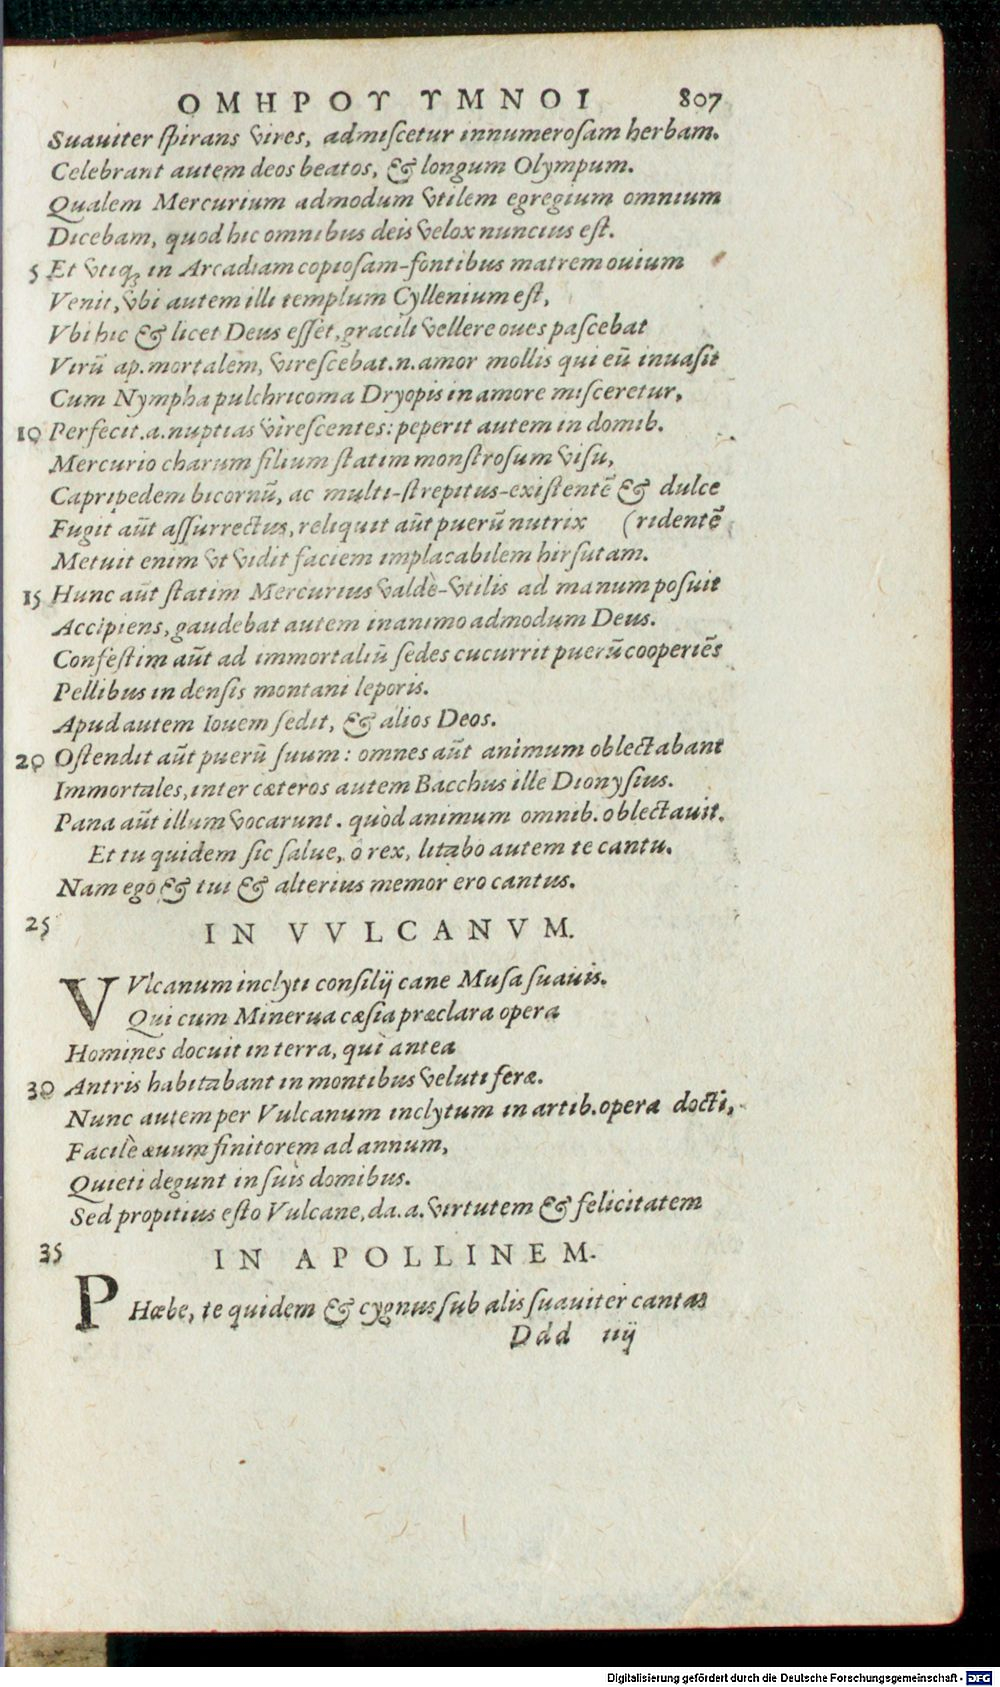 ΟΜΗΡΟΥ ΥΜΝΟΙ 807
Suauiter ſpirans vires, admiſcetur innumeroſam herbam.
Celebrant autem deos beatos, & longum Olympum.
Qualem Mercurium admodum vtilem egregium omnium
Dicebam, quod hic omnibus deis velox nuncius eſt.
5 Et vtiq; in Arcadiam copioſam-fontibus matrem ouium
Venit, vbi autem illi templum Cyllenium eſt,
Vbi hic & licet Deus eſſet, gracili vellere oues paſcebat
Virũ ap. mortalem, vireſcebat.n.amor mollis qui eũ inuaſit
Cum Nympha pulchricoma Dryopis in amore miſceretur,
10 Perfecit.a.nuptias vireſcentes: peperit autem in domib.
Mercurio charum filium ſtatim monſtroſum viſu,
Capripedem bicornũ, ac multi-ſtrepitus-exiſtentẽ & dulce
Fugit aũt aſſurrectus, reliquit aũt puerũ nutrix (ridentẽ
Metuit enim vt vidit faciem implacabilem hirſutam.
15 Hunc aũt ſtatim Mercurius valdè-vtilis ad manum poſuit
Accipiens, gaudebat autem in animo admodum Deus.
Confeſtim aũt ad immortaliũ ſedes cucurrit puerũ cooperiẽs
Pellibus in denſis montani leporis.
Apud autem Iouem ſedit, & alios Deos.
20 Oſtendit aũt puerũ ſuum: omnes aũt animum oblectabant
Immortales, inter cæteros autem Bacchus ille Dionyſius.
Pana aũt illum vocarunt. quòd animum omnib. oblectauit.
Et tu quidem ſic ſalue, o rex, litabo autem te cantu.
Nam ego & tui & alterius memor ero cantus.
25 IN VVLCANVM.
VVlcanum inclyti conſilij cane Muſa ſuauis.
Qui cum Minerua cæſia præclara opera
Homines docuit in terra, qui antea
30 Antris habitabant in montibus veluti feræ.
Nunc autem per Vulcanum inclytum in artib. opera docti,
Facilè æuum finitorem ad annum,
Quieti degunt in ſuis domibus.
Sed propitius eſto Vulcane, da.a. virtutem & felicitatem
35 IN APOLLINEM.
PHœbe, te quidem & cygnus ſub alis ſuauiter cantas
Ddd iiij
Digitalisierung gefördert durch die Deutsche Forschungsgemeinschaft - DFG